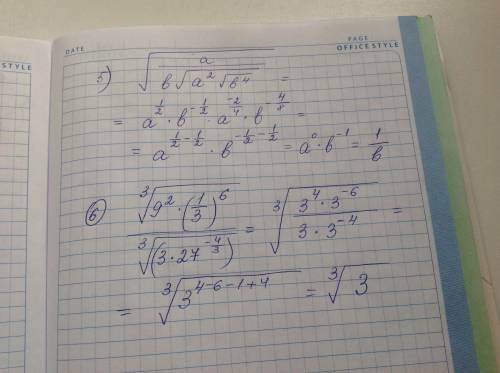 DATE PAGE
OFFICE STYLE
5) √(a / (b√(a² √b⁴))) =
= a^(1/2) · b^(-1/2) · a^(-2/4) · b^(-4/8) =
= a^(1/2 - 1/2) · b^(-1/2 - 1/2) = a⁰ · b⁻¹ = 1/b
6) ∛(9² · (1/3)⁶) / ∛(3 · 27^(-4/3)) = ∛((3⁴ · 3⁻⁶) / (3 · 3⁻⁴)) =
= ∛(3^(4-6-1+4)) = ∛3